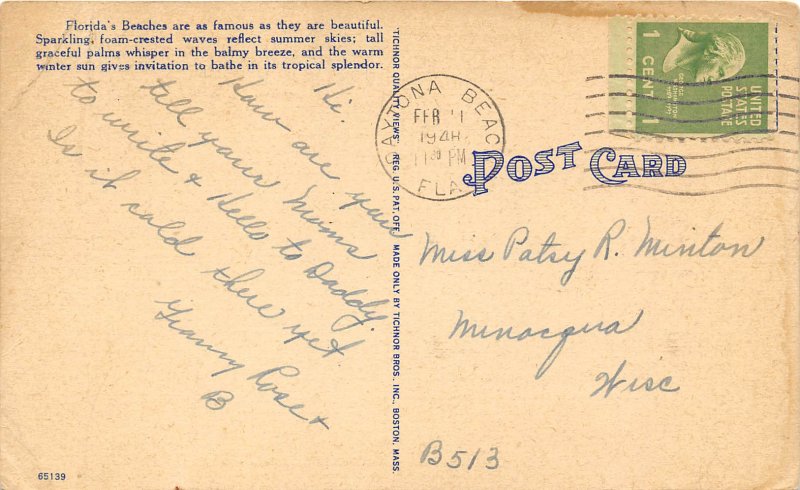 Florida's Beaches are as famous as they are beautiful.
Sparkling, foam-crested waves reflect summer skies; tall
graceful palms whisper in the balmy breeze, and the warm
winter sun gives invitation to bathe in its tropical splendor.
Hi.
How are you
tell your Moms
to write & Hello to Daddy.
Is it cold there yet
Granny Rose &
B
65139
TICHNOR QUALITY VIEWS. REG. U.S. PAT. OFF. MADE ONLY BY TICHNOR BROS. INC., BOSTON, MASS.
DAYTONA BEACH
FEB 11
1948
11 30 PM
FLA
1 CENT 1
UNITED
STATES
POSTAGE
POST CARD
Miss Patsy R. Minton
Minocqua
Wisc
B513